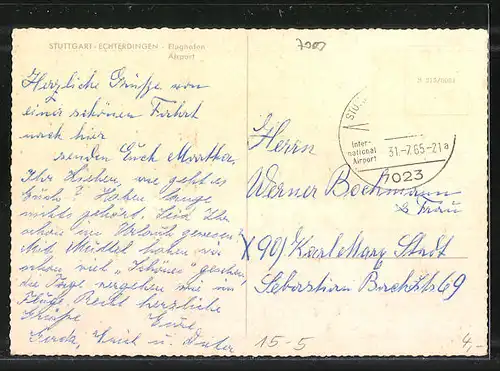 STUTTGART - ECHTERDINGEN - Flughafen
Airport
Herzliche Grüße von
einer schönen Fahrt
nach hier
senden Euch Martha,
Ihr Lieben, wie geht es
Euch? Haben lange
nichts gehört. Seid Ihr
schon im Urlaub gewesen?
Mit haben wir
schon viel „Schönes" gesehen,
die Tage vergehen wie im
Fluge. Recht herzliche
Grüße Eure
Gerda, u. Dieter
7000
D 213/0084
STU
Inter-
national
Airport
31.-7.65-21a
7023
Herrn
Werner Bochmann
u. Frau
X 901 Karl Marx Stadt
Sebastian Bachstr 69
15-5
4,-